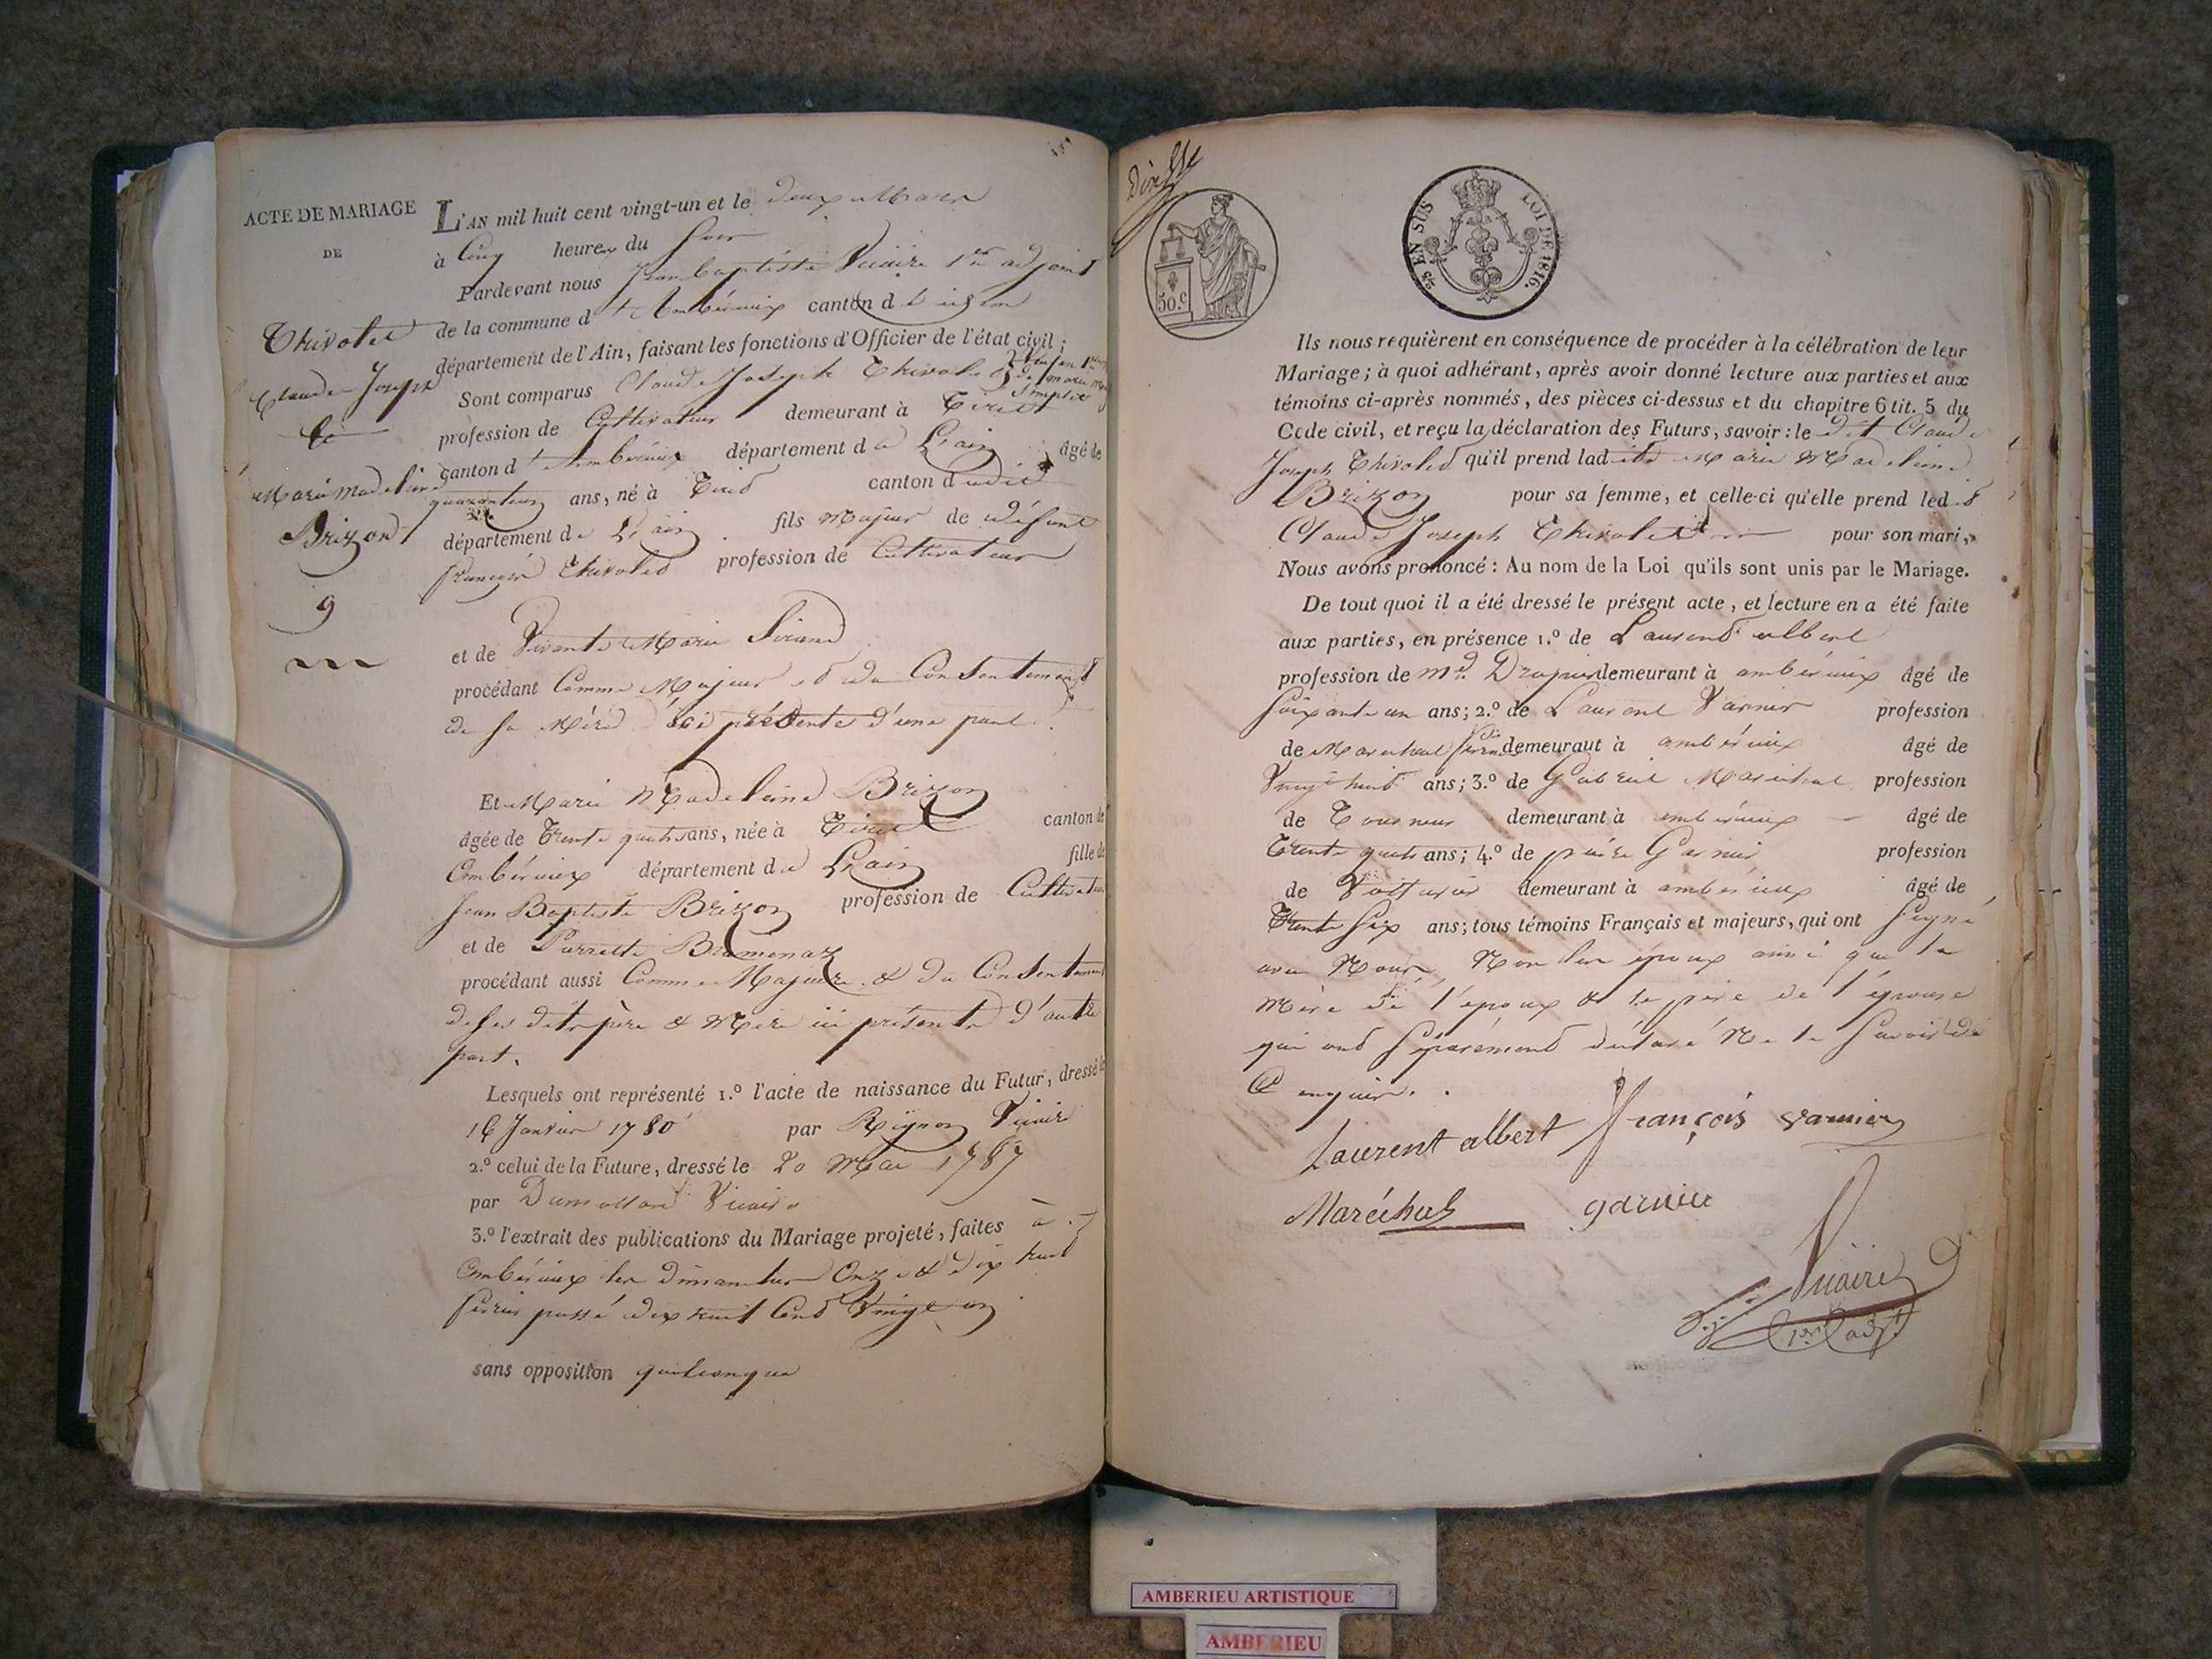 ACTE DE MARIAGE
DE
Thivolet
Claude Joseph
&
Marie Madelaine
Brizon
9
L'AN mil huit cent vingt-un et le deux Mars
à Cinq heures du Soir
Pardevant nous Jean Baptiste Vicaire 1er adjoint
de la commune d'Ambérieux canton d
département de l'Ain, faisant les fonctions d'Officier de l'état civil;
Sont comparus Claude Joseph Thivolet
profession de Cultivateur demeurant à Tiret
canton d'Ambérieux département de L'ain âgé de
ans, né à Tiret canton dudit
département de L'ain fils Majeur de défunt
François Thivolet profession de Cultivateur
et de Vivante Marie Sirand
procédant Comme Majeur et du Consentement
de sa Mère ici présente d'une part.
Et Marie Madelaine Brizon
âgée de Trente quatre ans, née à Tiret canton de
Ambérieux département de L'ain fille de
Jean Baptiste Brizon profession de Cultivateur
et de Pierrette Bramenaz
procédant aussi Comme Majeure & du Consentement
de ses dits père & Mère ici présents d'autre
part.
Lesquels ont représenté 1.º l'acte de naissance du Futur, dressé le
16 Janvier 1780 par Reynon Vicaire
2.º celui de la Future, dressé le 20 Mai 1787
par Dumollard Vicaire
3.º l'extrait des publications du Mariage projeté, faites à
Ambérieux les Dimanches Onze & dix huit
fevrier passé dix huit Cent Vingt un
sans opposition quelconque
50.c
25 EN SUS LOI DE 1816.
Ils nous requièrent en conséquence de procéder à la célébration de leur
Mariage; à quoi adhérant, après avoir donné lecture aux parties et aux
témoins ci-après nommés, des pièces ci-dessus et du chapitre 6 tit. 5 du
Code civil, et reçu la déclaration des Futurs, savoir: le dit Claude
Joseph Thivolet qu'il prend ladite Marie Madelaine
Brizon pour sa femme, et celle-ci qu'elle prend ledit
Claude Joseph Thivolet pour son mari,
Nous avons prononcé: Au nom de la Loi qu'ils sont unis par le Mariage.
De tout quoi il a été dressé le présent acte, et lecture en a été faite
aux parties, en présence 1.º de Laurent albert
profession de Md Drapier demeurant à ambérieux âgé de
Soixante un ans; 2.º de Laurent Varnier profession
de Marechal demeurant à ambérieux âgé de
Vingt huit ans; 3.º de Gabriel Maréchal profession
de Tourneur demeurant à ambérieux âgé de
Trente quatre ans; 4.º de pierre Garnier profession
de Voiturier demeurant à ambérieux âgé de
Trente Six ans; tous témoins Français et majeurs, qui ont Signé
avec Nous, Non les époux ainsi que la
Mère de l'époux & le père de l'épouse
qui ont séparément déclaré Ne le Savoir de
Ce enquis.
Laurent albert François varnier
Maréchal garnier
Vicaire
1er adjt
AMBERIEU ARTISTIQUE
AMBERIEU